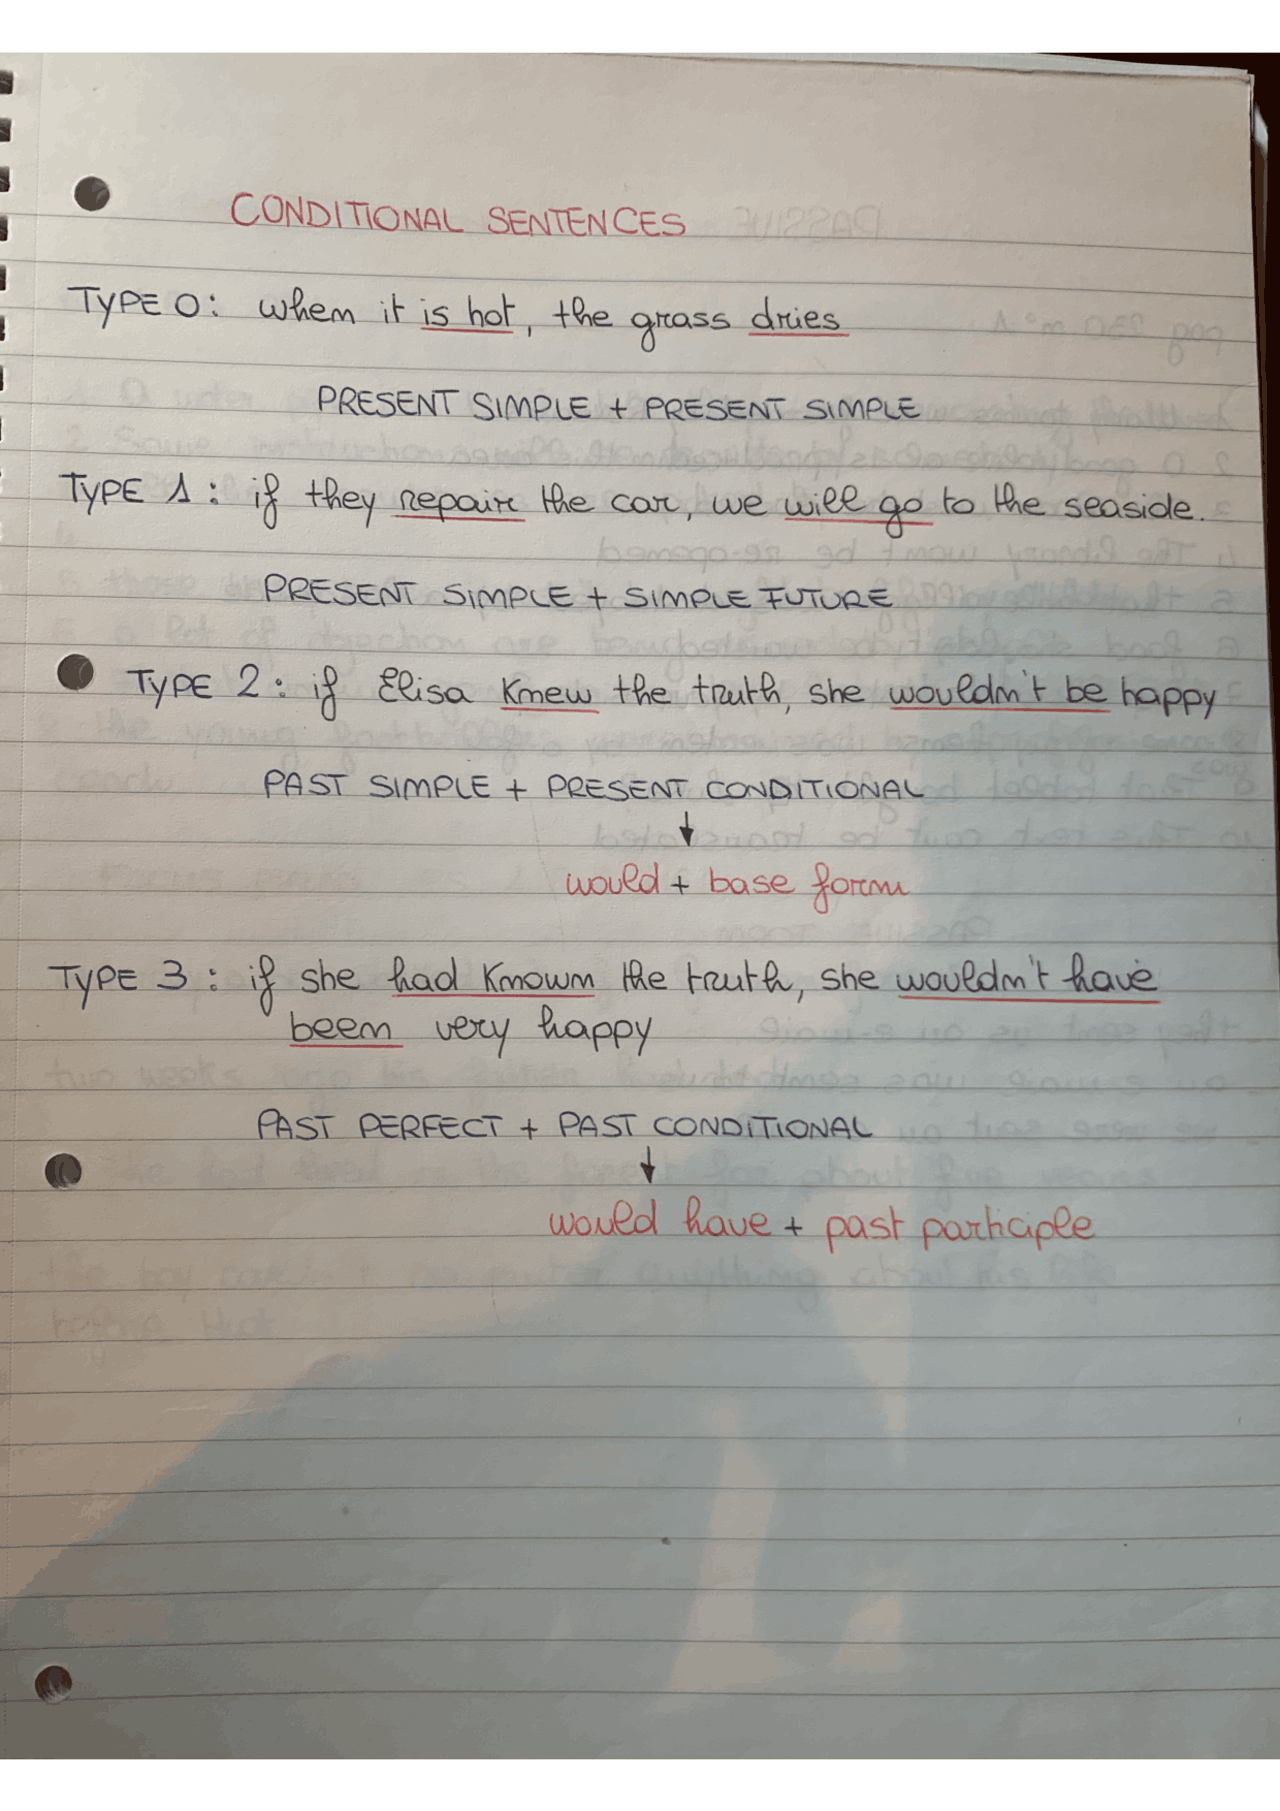 CONDITIONAL SENTENCES
TYPE 0: when it is hot, the grass dries
PRESENT SIMPLE + PRESENT SIMPLE
TYPE 1: if they repair the car, we will go to the seaside.
PRESENT SIMPLE + SIMPLE FUTURE
TYPE 2: if Elisa knew the truth, she wouldn't be happy
PAST SIMPLE + PRESENT CONDITIONAL
↓
would + base form
TYPE 3: if she had known the truth, she wouldn't have
been very happy
PAST PERFECT + PAST CONDITIONAL
↓
would have + past participle